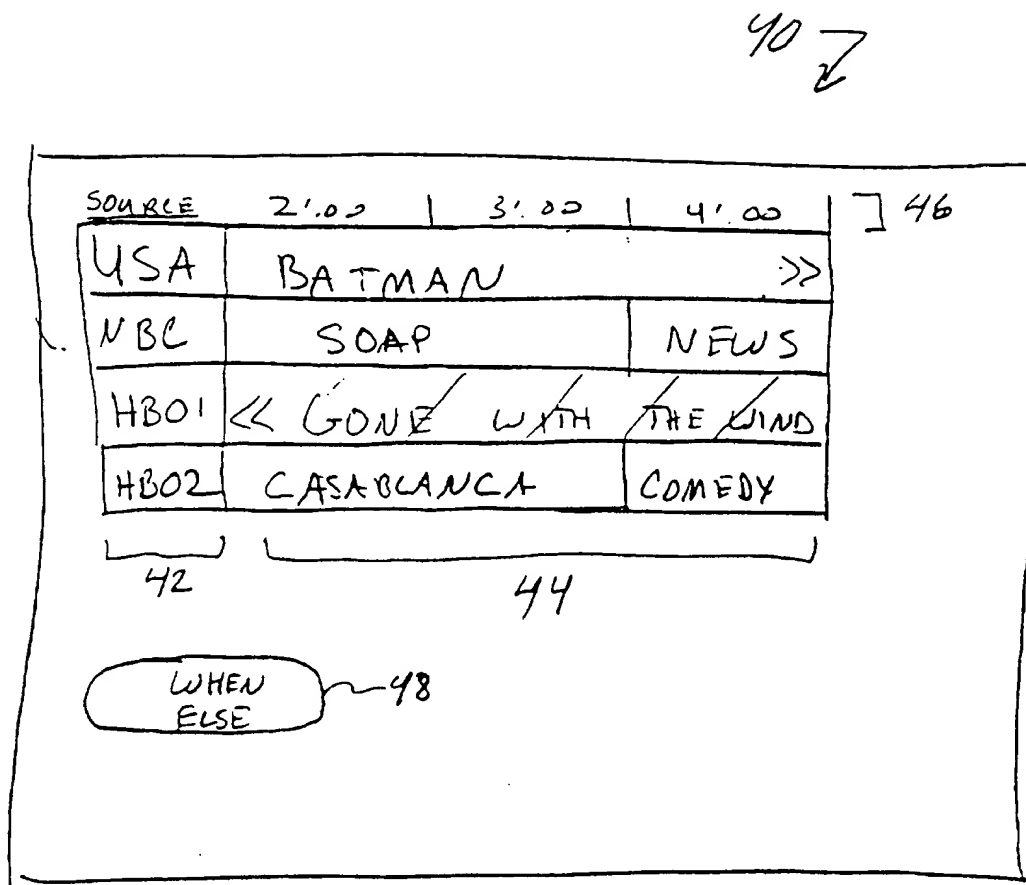 40
SOURCE 2:00 | 3:00 | 4:00 46
USA BATMAN >>
NBC SOAP NEWS
HBO1 << GONE WITH THE WIND
HBO2 CASABLANCA COMEDY
42 44
WHEN 48
ELSE